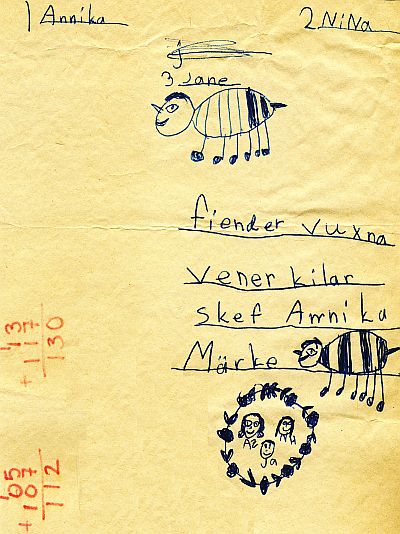 1 Annika 2 NiNa
3 Jane
fiender vuxna
vener kilar
skef Annika
Märke
Ja
13
+ 117
130
05
+ 107
112